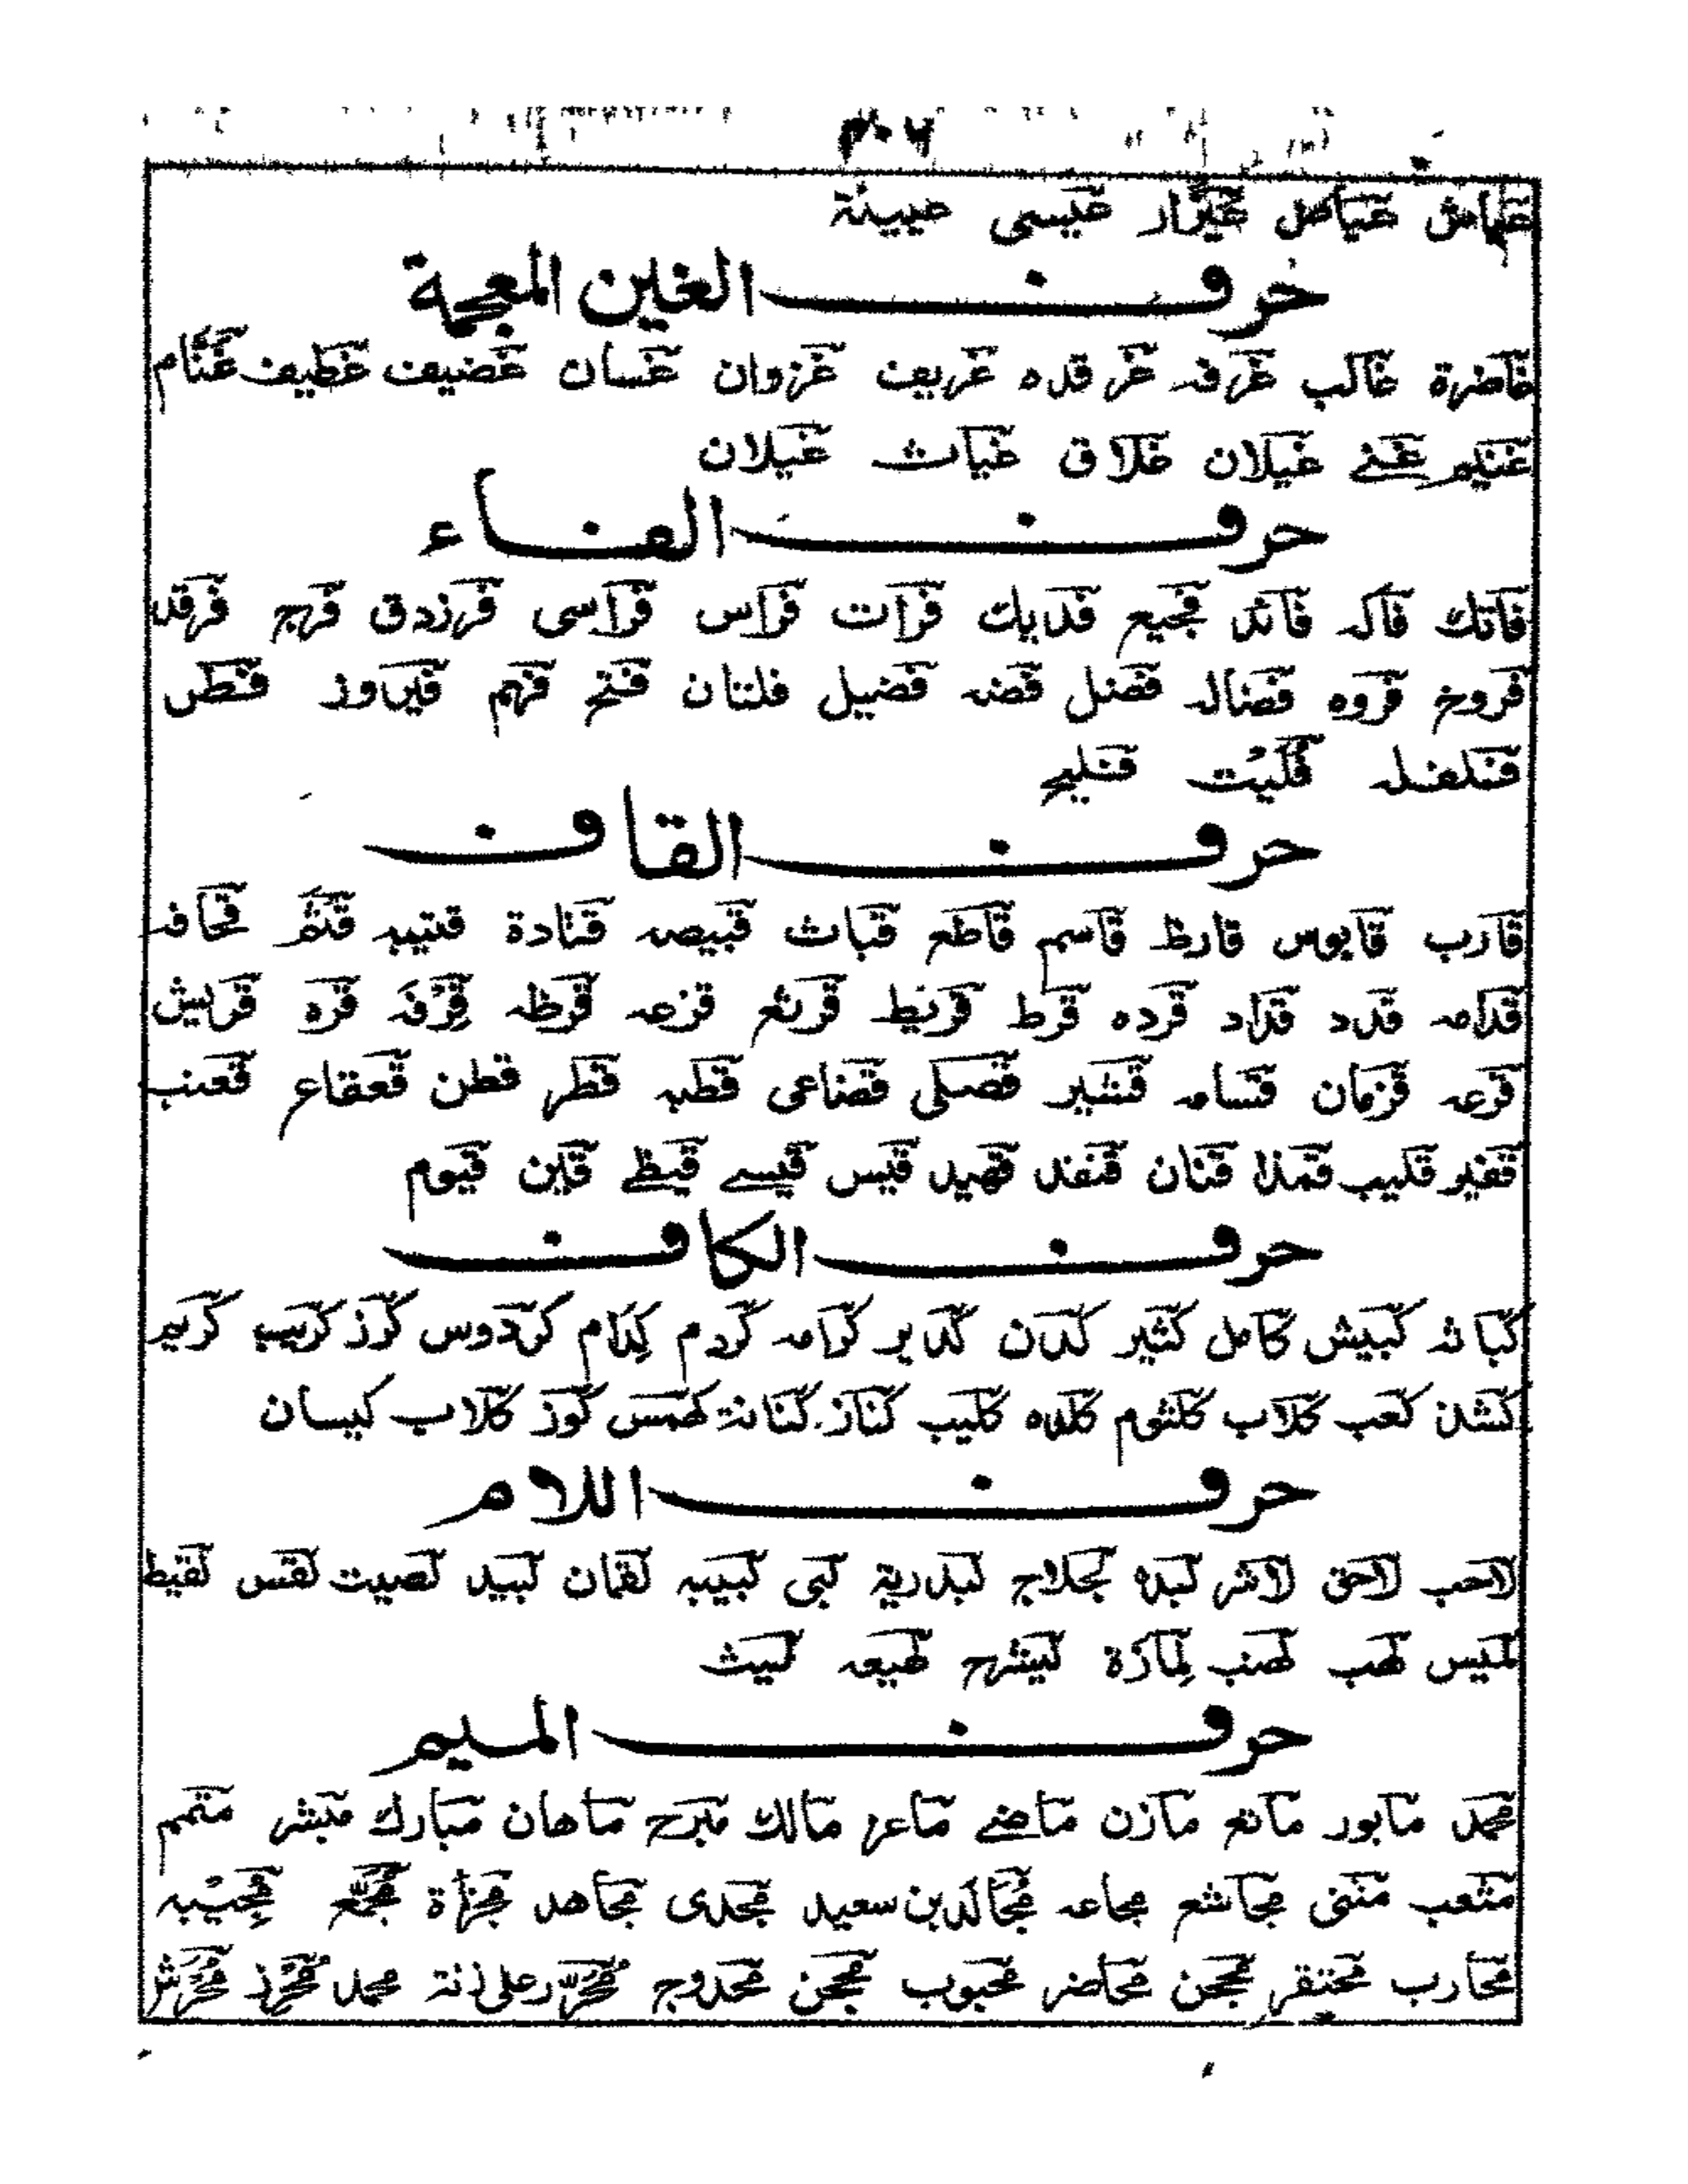 عياض عيزار عيسى عيينة
حرف الغين المعجمة
غاضرة غالب غرفه غرقده غريف غزوان غسان غضيف غطيف غنام
غنيم غنے غيلان غلاق غياث غيلان
حرف الفاء
فاتك فاكه فائد فجيع فديك فرات فراس فراسى فرزدق فرج فرقد
فروخ فروه فضاله فضل فضه فضيل فلتان فتح فهم فيراوز فطس
فليت فليح
حرف القاف
قارب قابوس قارظ قاسم قاطع قباث قبيصه قتادة قتيبه قثم قحافه
قدامه قدد قداد قرده قرط قريط قريع قزعه قرظه قرفه قره قريش
قرعه قزمان قسامه قشير قصلى قضاعى قطبه قطر قطن قعقاع قعنب
قفيز قليب قنان قنفذ قهيد قيس قيسے قيظے قين قيوم
حرف الكاف
كباثه كبيش كامل كثير كدن كدير كرامه كردم كدام كردوس كرز كريب كريم
كشن كعب كلاب كلثوم كلده كليب كناز كنانة كهمس كوز كلاب كيسان
حرف اللام
لاحب لاحق لاشر لبده لجلاج لبدرية لبى لبيبه لقمان لبيد لصيت لقس لقيط
لميس لهب لصب لمازة ليشرح لهيعه ليث
حرف الميم
محمد مابور ماتع مازن ماضے ماعز مالك مبرح ماهان مبارك مبشر متمم
مثعب مثنى مجاشع مجاعه مجالد بن سعيد مجدى مجاهد مجزأة مجمع مجيبه
محارب محتفر محجن محاضر محبوب محجن محدوج محرر على زنة محمد محرز محرش